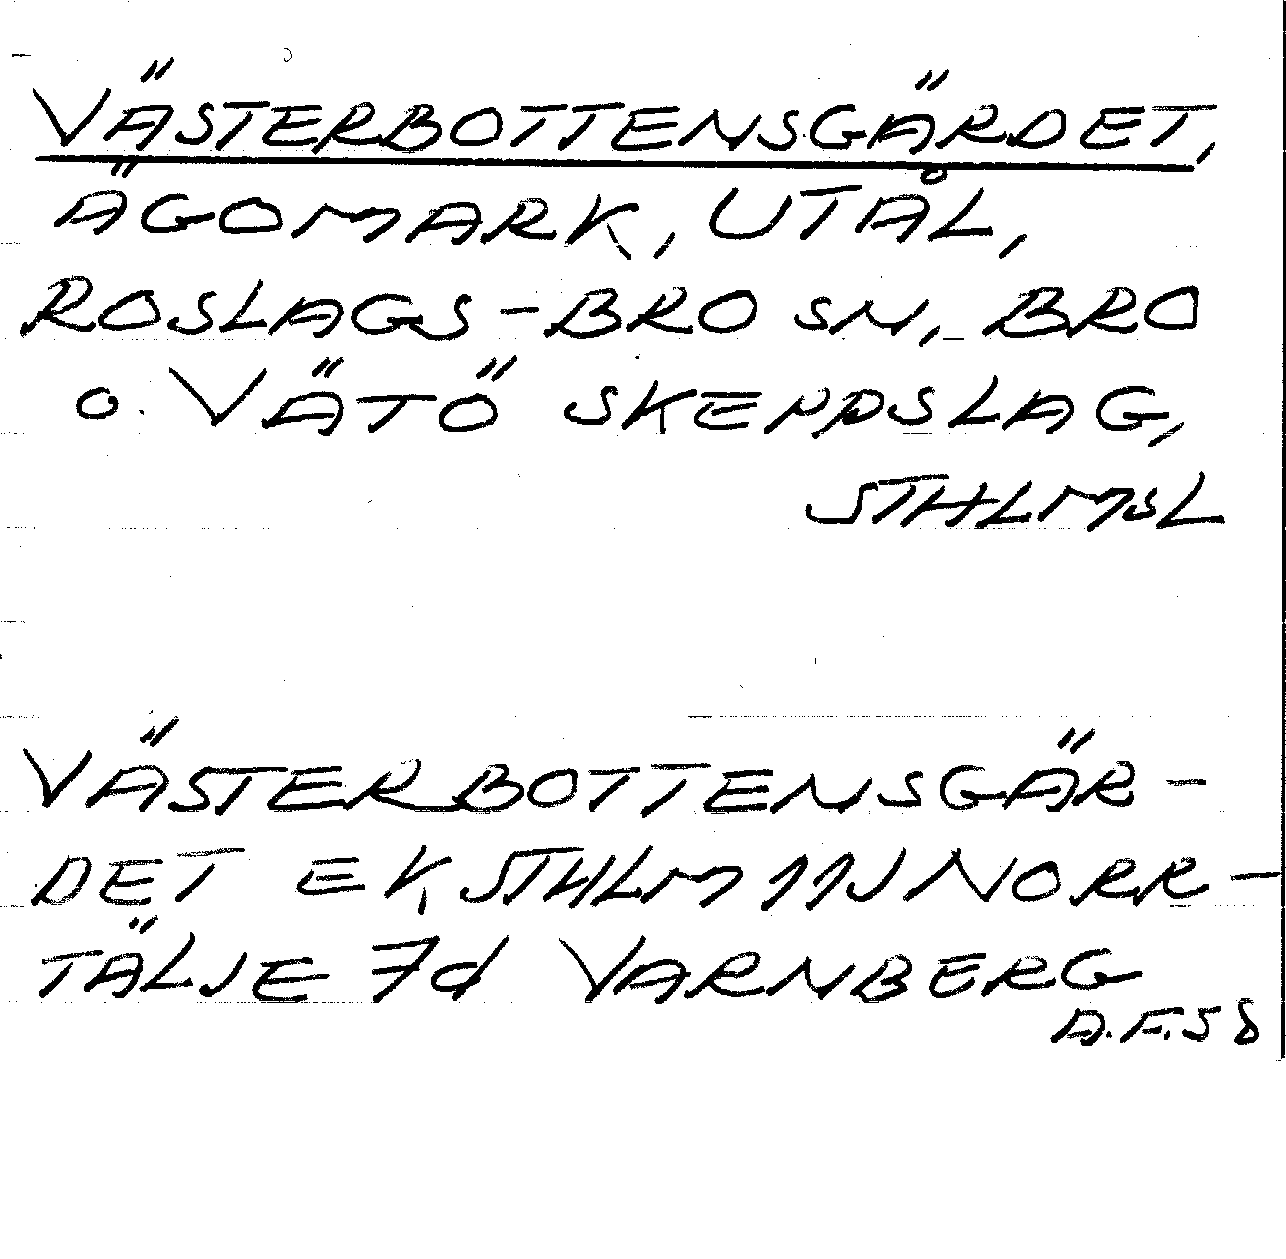 VÄSTERBOTTENSGÄRDET,
ÄGOMARK, UTÅL,
ROSLAGS-BRO SN, BRO
O. VÄTÖ SKEPPSLAG,
STHLMSL
VÄSTERBOTTENSGÄR-
DET EK STHLM 11J NORR-
TÄLJE 7d VARNBERG
A.F.58